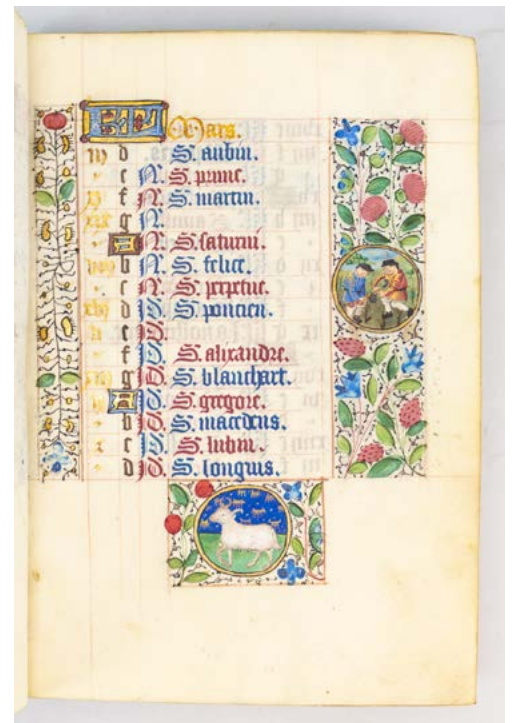 KL Mars.
iii d S. aubin.
e N. S. prime.
f N. S. martin.
g N.
A N. S. saturni.
b N. S. felice.
c N. S. perpetue.
d S. poncien.
e
f S. alixandre.
g S. blanchart.
A S. gregore.
b S. macedeus.
c S. lubin.
d S. longuis.